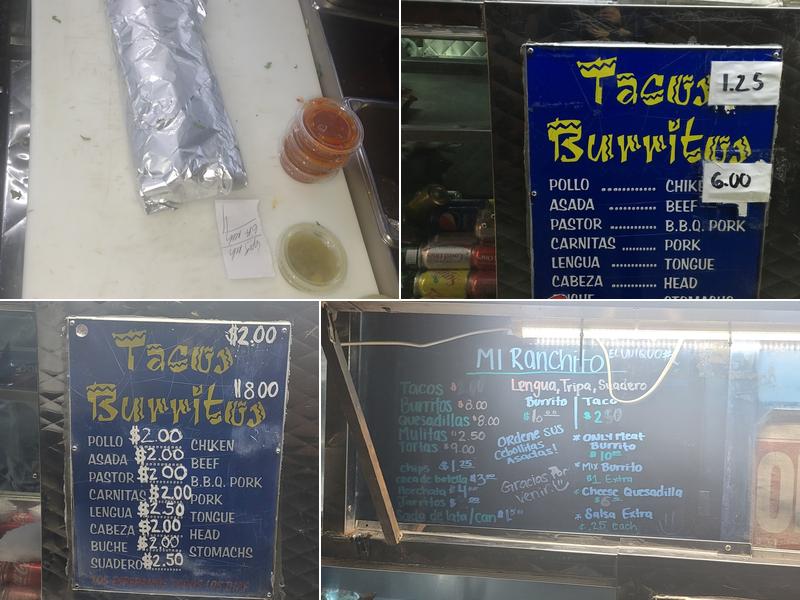 Tacos 1.25
Burritos
6.00
POLLO ............ CHIKE
ASADA ............ BEEF
PASTOR ............ B.B.Q. PORK
CARNITAS ......... PORK
LENGUA ............ TONGUE
CABEZA ............ HEAD
STOMACHS
$2.00
Tacos
8.00
Burritos
POLLO $2.00 CHIKEN
ASADA $2.00 BEEF
PASTOR $2.00 B.B.Q. PORK
CARNITAS $2.00 PORK
LENGUA $2.50 TONGUE
CABEZA $2.00 HEAD
BUCHE $2.00 STOMACHS
SUADERO $2.50
MI Ranchito
EL UNIQUO#
Tacos $
Burritos $8.00
Quesadillas $8.00
Mulitas $2.50
Tortas $9.00
chips $1.25
coca de botella $3.00
Horchata $4.00
Jarritos $
Soda de lata/can $1.50
Lengua, Tripa, Suadero
Burrito
$10.00
Taco
$2.50
ORDENE SUS
Cebollitas
Asadas!
Gracias Por
Venir.
* ONLY Meat
Burrito
$10.00
* Mix Burrito
$1 Extra
* Cheese Quesadilla
* Salsa Extra
¢.25 each